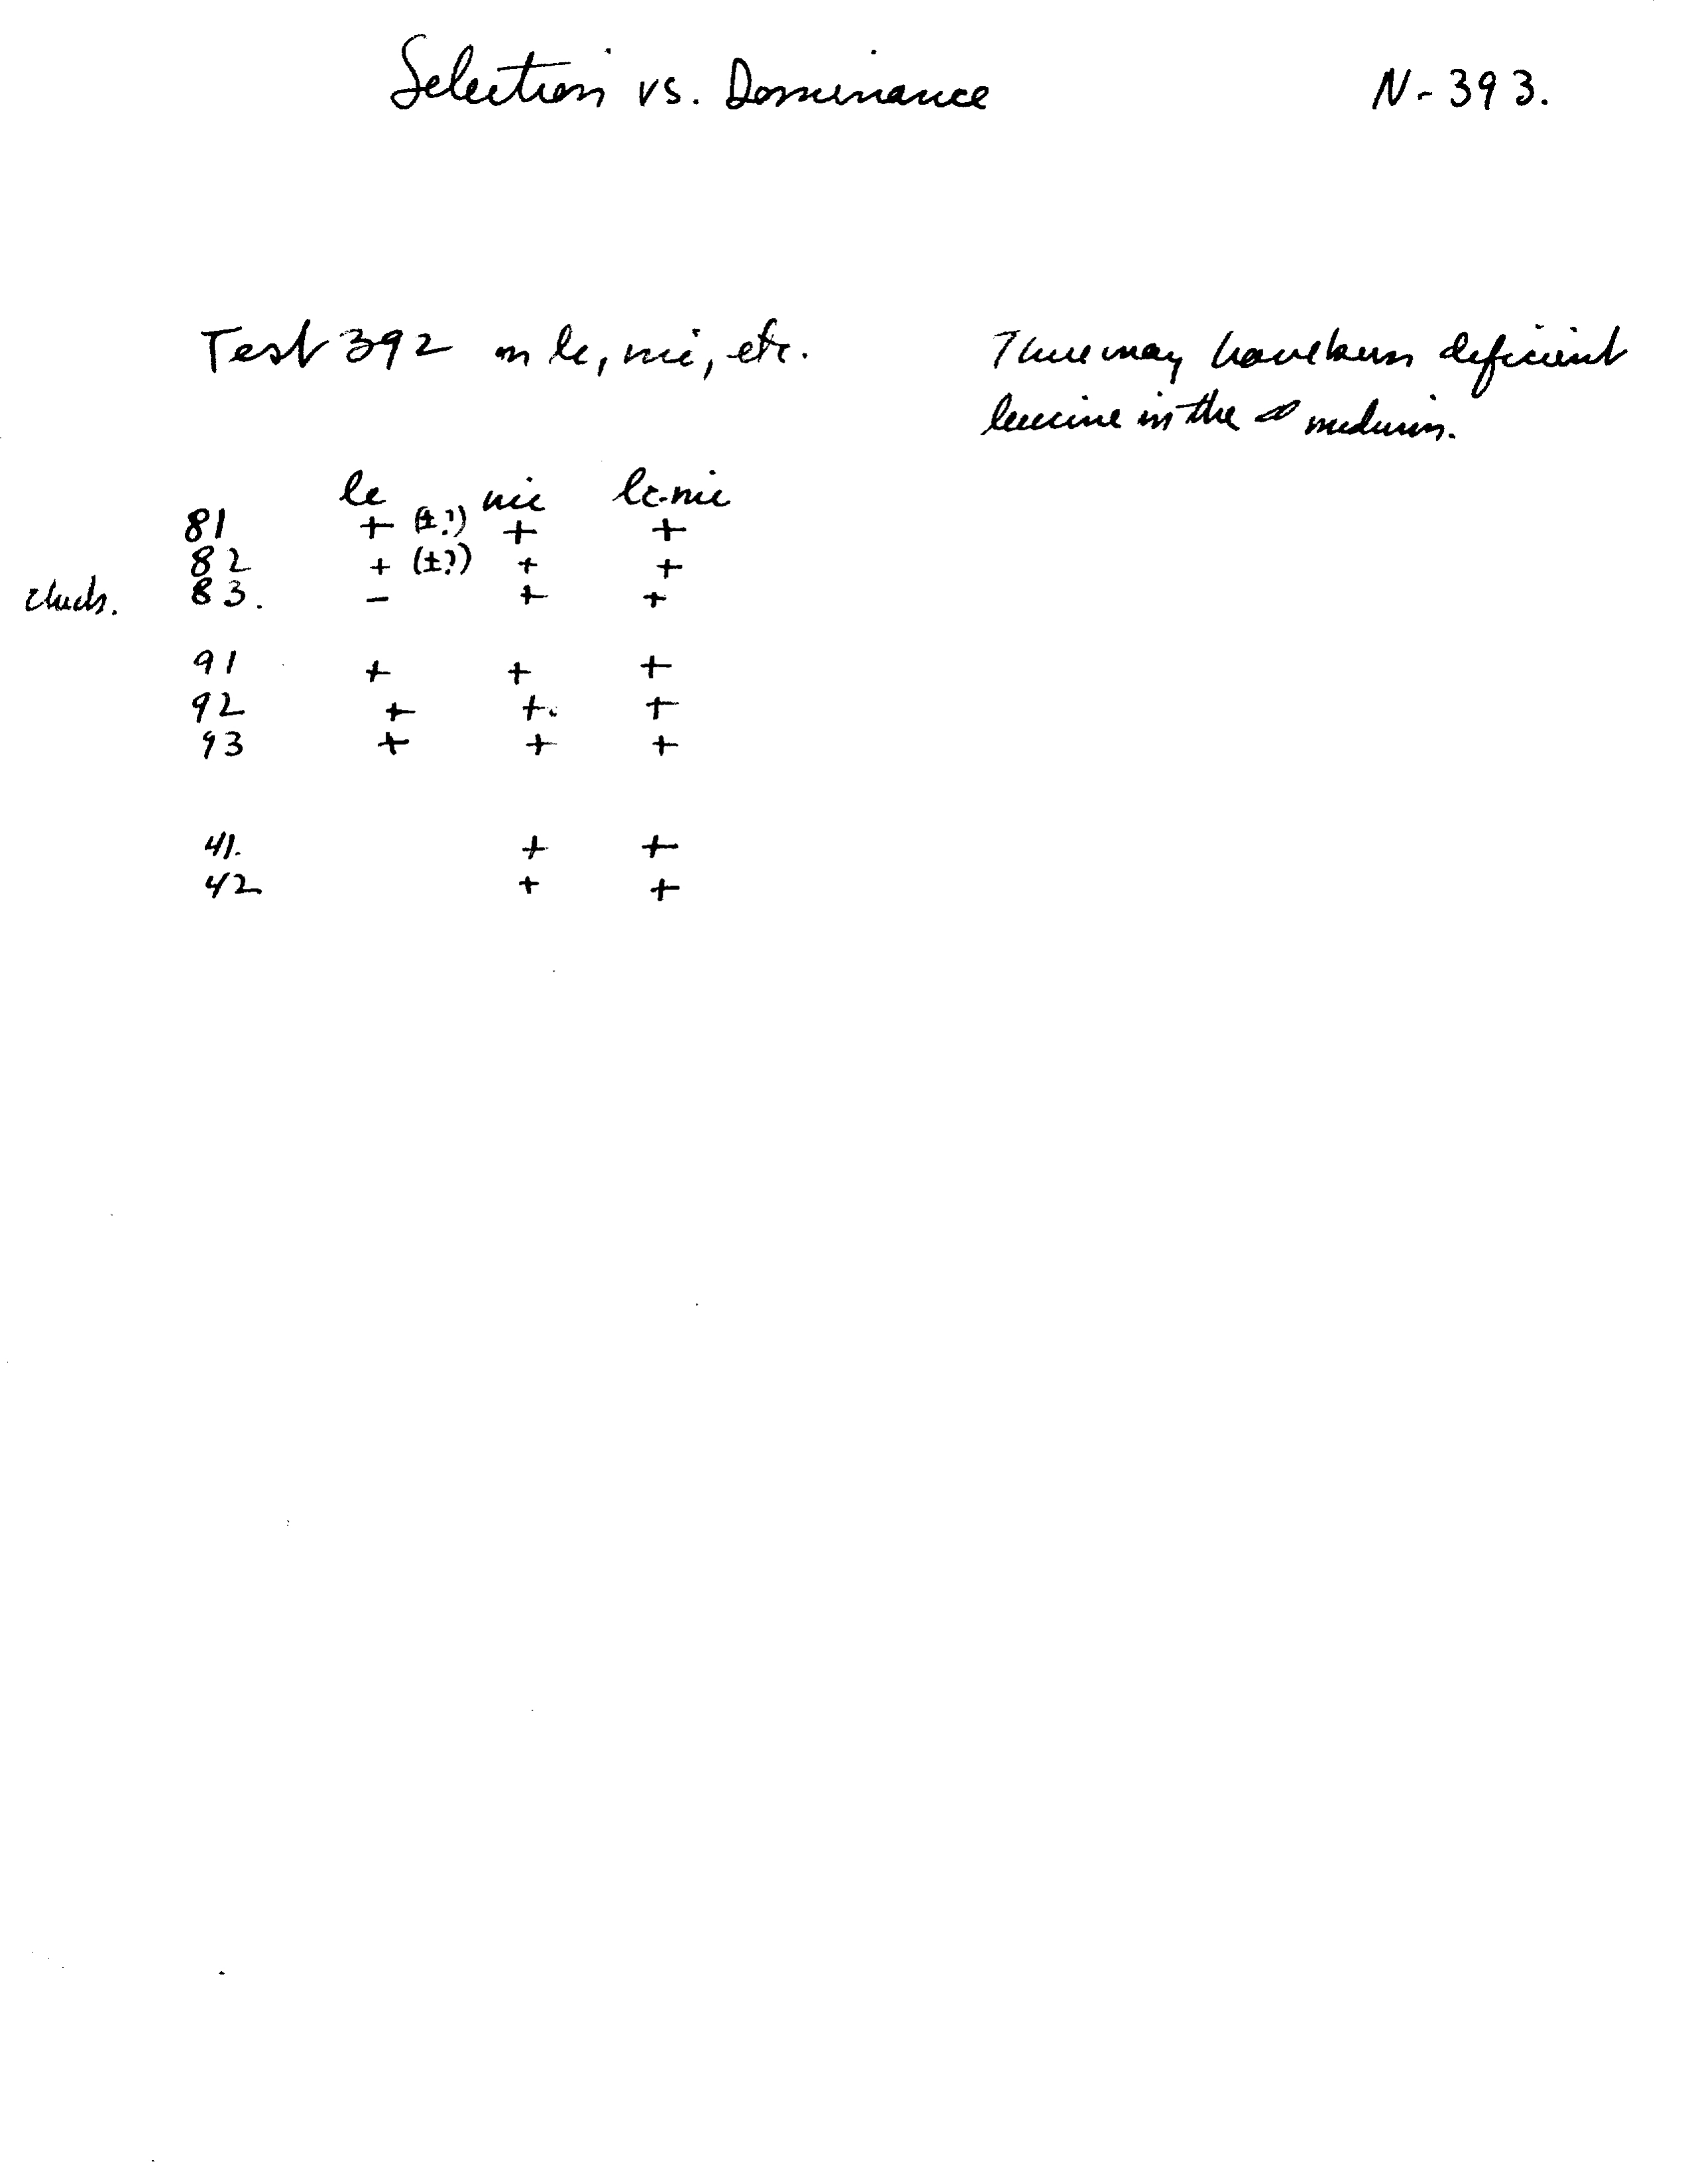 Selection vs. Dominance N-393.
Test 392 on le, nic, etc.
There may have been deficient
leucine in the medium.
le nic le-nic
81 + (±?) + +
82 + (±?) + +
check. 83. - + +
91 + + +
92 + +. +
93 + + +
41. + +
42 + +